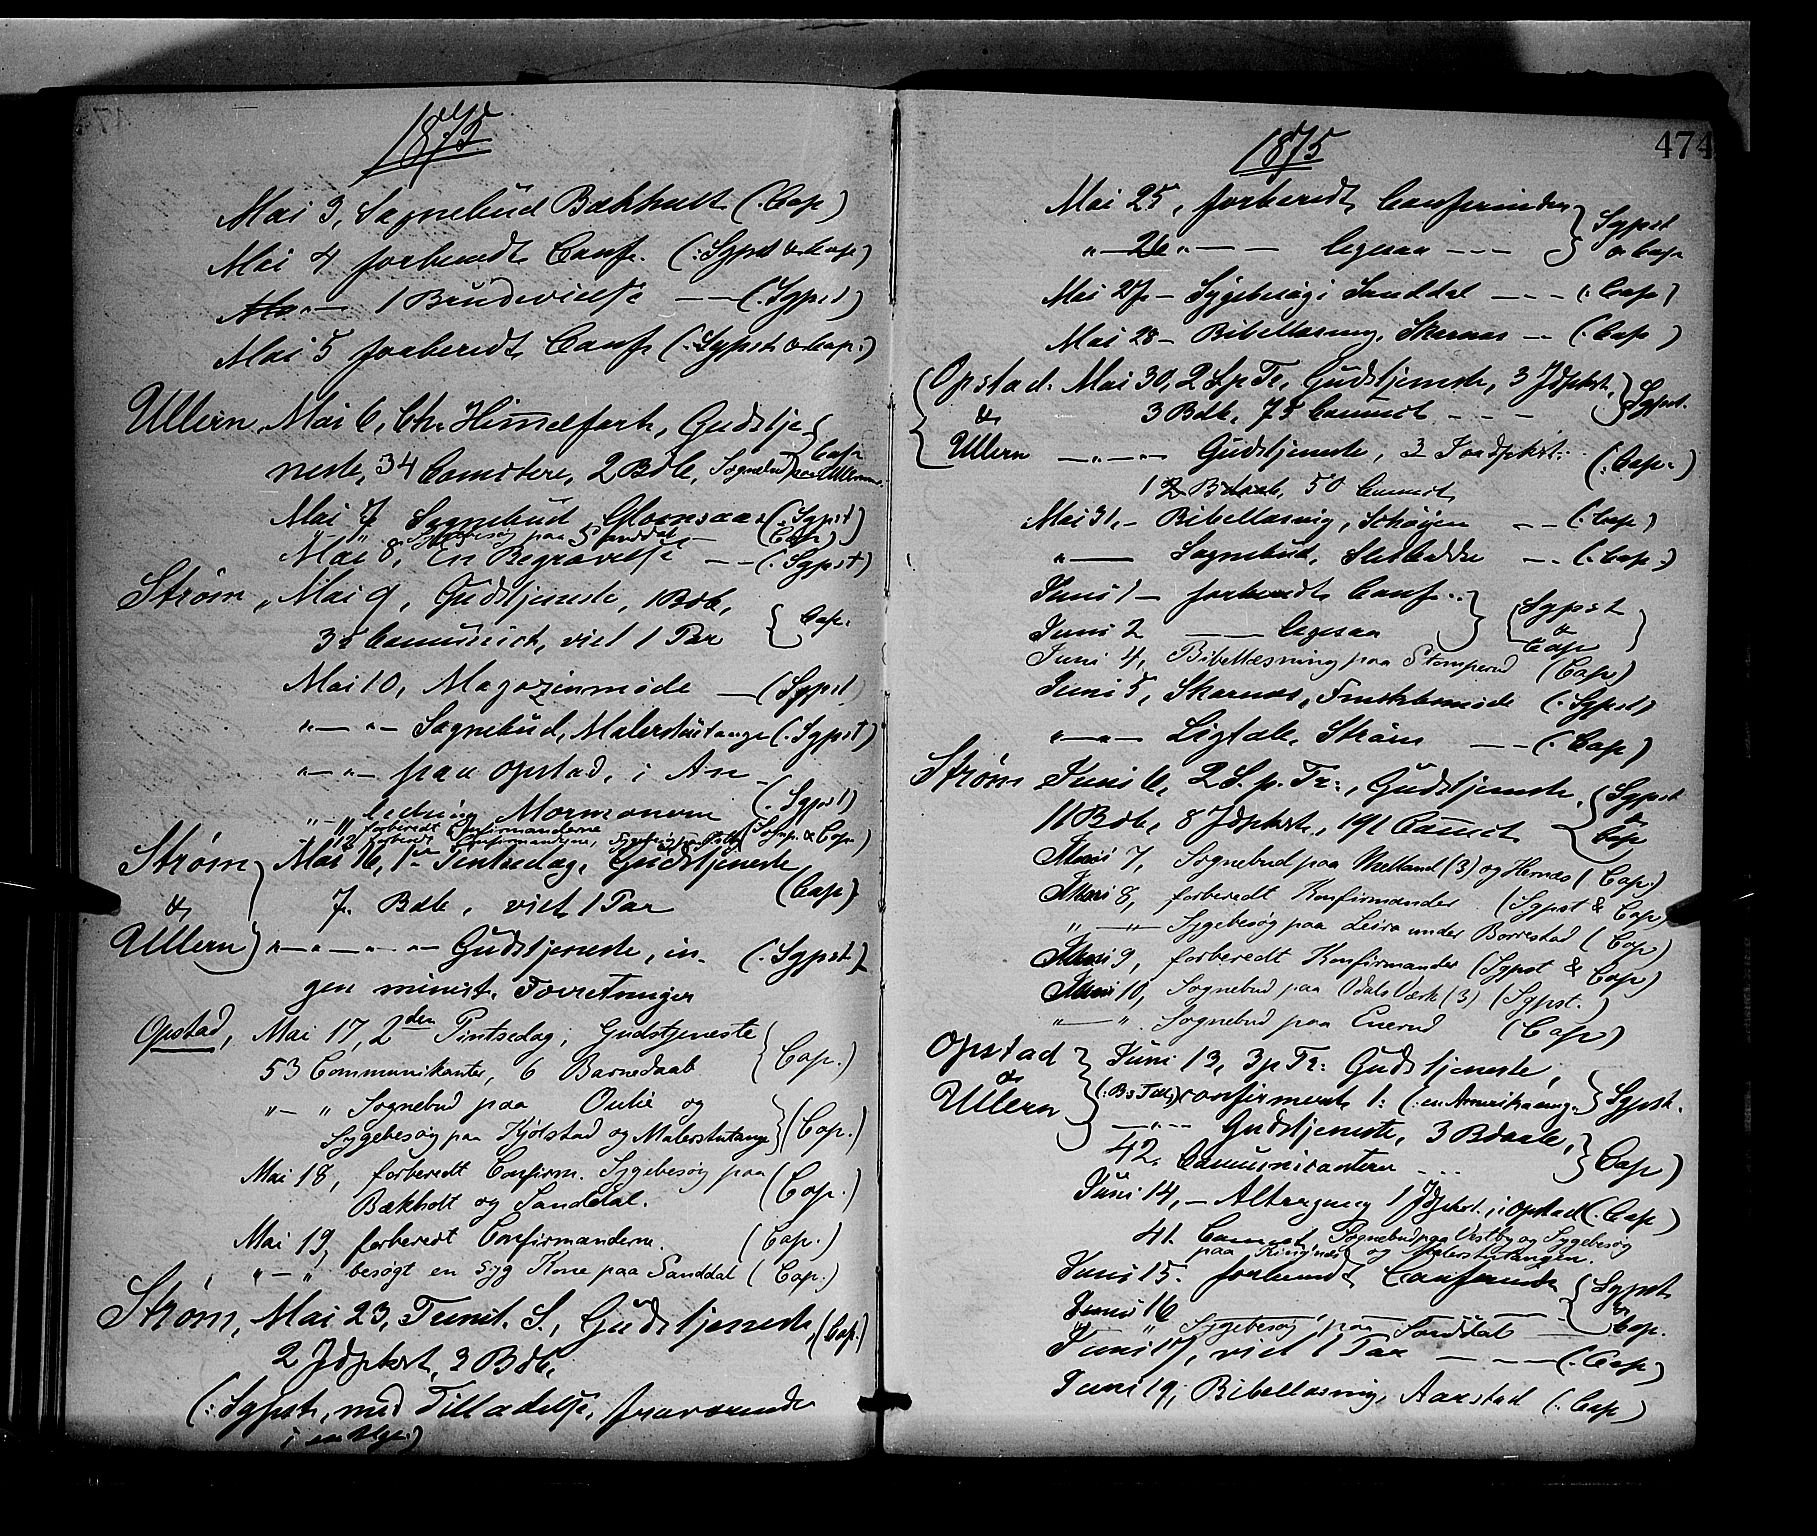 1875
Mai 3, Sognebud Bækholt (: Cap)
Mai 4 forberedt Conf. (: Sgpst & Cap)
— 1 Brudevielse — (: Sgpst)
Mai 5 forberedt Conf. (: Sgpst & Cap:)
Ullern, Mai 6, Chr. Himelfart, Gudstje-
neste, 34 Comctere, 2 Bdb, Sognebud paa Ullern } Cap
Mai 7 Sognebud Glomsaas (: Sgpst)
" Sygebesøg paa Sanddal — (Cap)
Mai 8, En Begravelse — (: Sgpst)
Strøm, Mai 9, Gudstjeneste, 1 Bdb,
35 Comunict, viet 1 Par } Cap.
Mai 10, Magazinmøde — (: Sgpst)
" — " — Sognebud, Malerstutange (: Sgpst)
" — " — paa Opstad, i An-
ledning Mormonerne (: Sgpst)
" 11 forberedt Confirmanderne
" 12 forberedt Confirmanderne, (Sgpst & Cap)
Strøm Mai 16, 1ste Pintsedag, Gudstjeneste
& 7 Bdb, viet 1 Par (Cap)
Ullern " — " — Gudstjeneste, in- (: Sgpst)
gen minist. Forretninger
Opstad, Mai 17, 2den Pintsedag, Gudstjeneste
53 Communikanter, 6 Barnedaab } Cap.)
" — " Sognebud paa Oulie og
Sygebesøg paa Kjølstad og Malerstutange } (Cap.)
Mai 18, forberedt Confirm. Sygebesøg paa
Bækholt og Sanddal. (Cap.)
Mai 19, forberedt Confirmanderne. (Cap.)
" — " besøgt en syg Kone paa Sanddal (Cap.)
Strøm, Mai 23, Trinit. S., Gudstjeneste, (Cap.)
2 Jdpkst, 3 Bdb,
(: Sgpst, med Tilladelse, fraværende
i en Uge)
474
1875
Mai 25, forberedt Confirmander } Sgpst
" — 26 " — — ligesaa — — — } & Cap
Mai 27 — Sygebesøg i Sanddal — — — (: Cap)
Mai 28 — Bibellæsning, Skarnes — (: Cap)
Opstad Mai 30, 2 S p Tr, Gudstjeneste, 3 Jdpkst,
& 3 Bdb, 75 Comunict — — — } Sgpst.
Ullern — " — Gudstjeneste, 3 Jordpkst: (: Cap.)
1 Bdaab, 50 Comunict
Mai 31, — Bibellæsning, Schøyen — — (: Cap)
" — Sognebud, — — (: Cap.)
Juni 1 — forberedt Conf. — } (Sgpst
Juni 2 — ligesaa } & Cap)
Juni 4, Bibellæsning paa Stomperud (Cap)
Juni 5, Skarnes, møde (: Sgpst)
" — " — Ligtale, Strøm — — (: Cap)
Strøm Juni 6, 2 S. p. Tr:, Gudstjeneste, } Sgpst
11 Bdb, 8 Jdpkst, 191 Comict. } & Cap
Juni 7, Sognebud paa Melland (3) og Hernæs (Cap.)
Juni 8, forberedt Konfirmander (Sgpst & Cap)
" — " — Sygebesøg paa Leira under Borrestad (Cap)
Juni 9, forberedt Konfirmander (Sgpst & Cap)
Juni 10, Sognebud paa Odals Værk (3) (Sgpst.)
" — " Sognebud paa Enerud (Cap)
Opstad Juni 13, 3 p Tr: Gudstjeneste,
& confirmeret 1: (: en Amerikaemg. } Sgpst.
Ullern — " — Gudstjeneste, 3 Bdaab,
42 Comunicantere — — — } Cap)
Juni 14, — Altergang 1 Jdpkst. i Opstad (: Cap)
41 Comict Sognebud paa Vestby og Sygebesøg
paa Ringnes og Malerstutangen.
Juni 15. forberedt Confirmander } Sgpst
Juni 16 — — — } & Cap.
" " Sygebesøg paa Sanddal —
Juni 17, viet 1 Par — — — (: Cap)
Juni 19, Bibellæsning, Aarstad (: Cap)